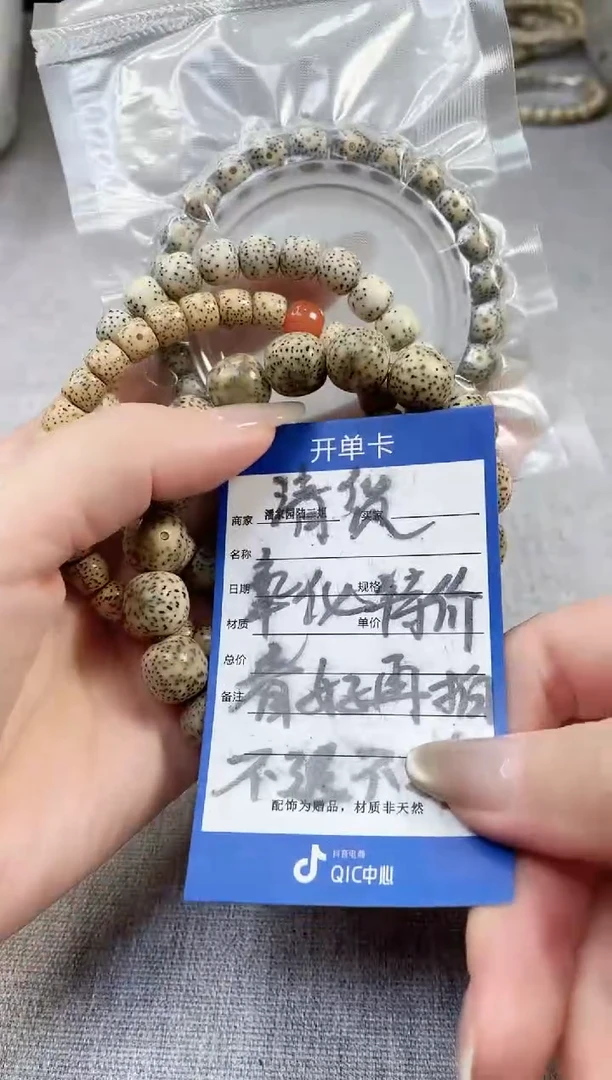 开单卡
商家 潘家园 买家
名称
日期 规格
特价
材质 单价
总价
看好再拍
备注
不退不
配饰为赠品，材质非天然
抖音电商
QIC中心